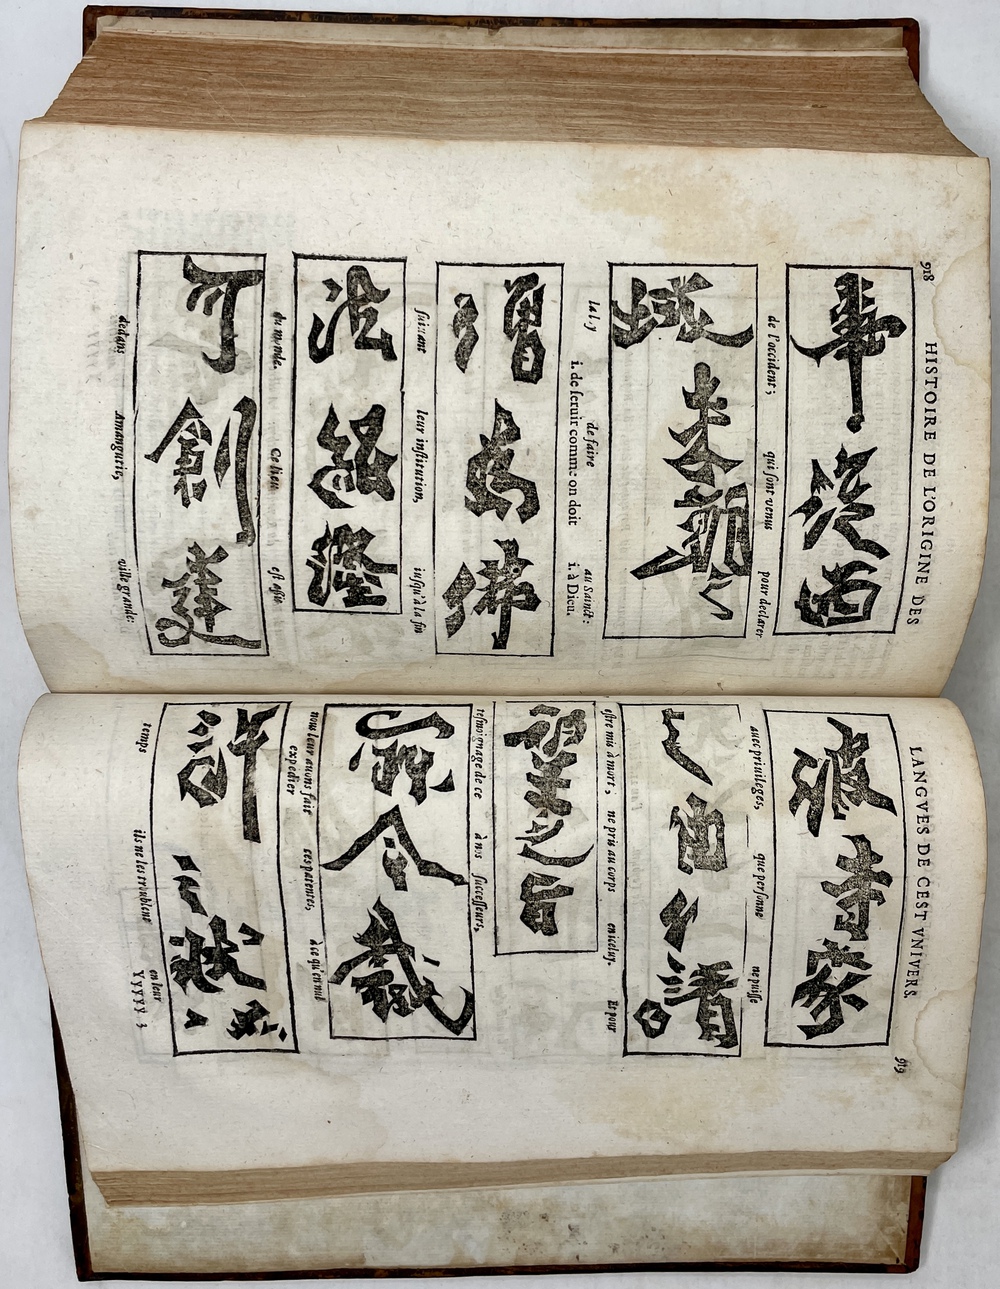 918 HISTOIRE DE L'ORIGINE DES
事 從 西
de l'occident ; qui ſont venus pour declarer
域 來 朝 之
la l y de faire au Sainct:
i. de ſeruir comme on doit i. à Dieu.
僧 為 佛
ſuiuant leur inſtitution, iuſqu'à la fin
法 紹 隆
du monde. Ce lieu eſt aſſis
可 創 建
dedans Amangutie, ville grande:
LANGVES DE CEST VNIVERS. 919
彼 寺 家
auec priuileges, que perſonne ne puiſſe
之 由 任 請
eſtre mis à mort ; ne pris au corps en iceluy. Et pour
望 之 旨
teſmoignage de ce à nos ſucceſſeurs,
所 令 裁
nous leur auons fait ces patentes, à ce qu'en nul
expedier
許 之 狀 如 件
temps ils ne les troublent en leur
Yyyyy 3